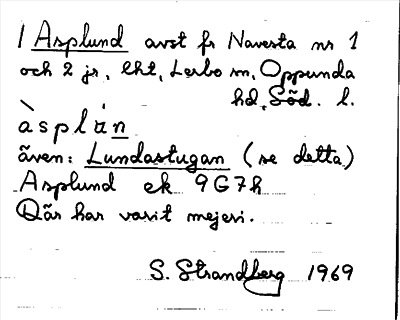 / Asplund avst fr Navesta nr 1
och 2 jr, lht, Lerbo sn, Oppunda
hd, Söd. l.
àsplún
även: Lundastugan (se detta)
Asplund ek 9G7h
Där har varit mejeri.
S. Strandberg 1969